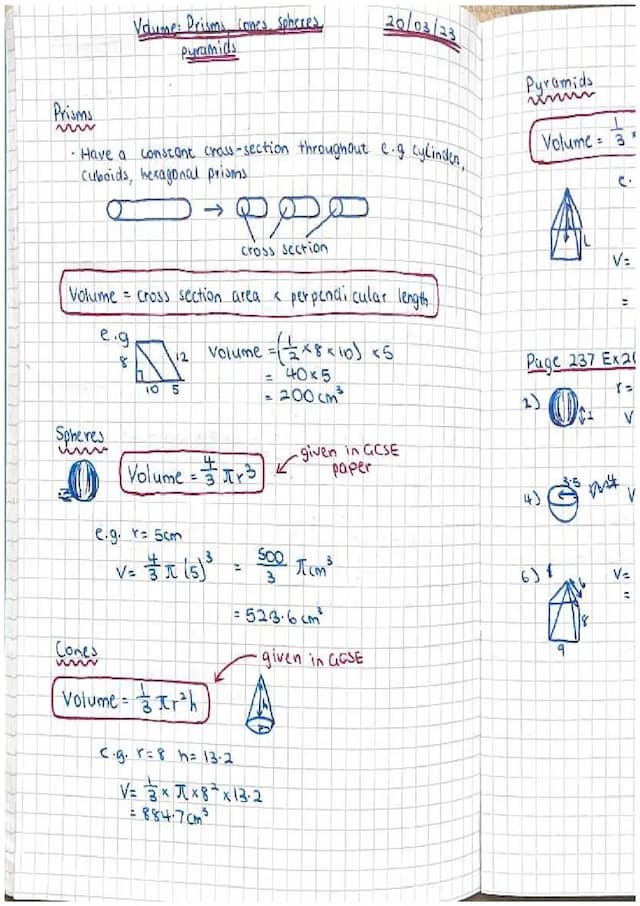 Volume: Prisms, cones, spheres,
pyramids
20/03/23
Prisms
· Have a constant cross-section throughout e.g cylinder,
cuboids, hexagonal prisms
cross section
Volume = cross section area × perpendicular length
e.g
8
12
10 5
Volume = (1/2 × 8 × 10) × 5
= 40 × 5
= 200 cm³
Spheres
Volume = 4/3 πr³
given in GCSE
paper
e.g. r = 5cm
V = 4/3 π (5)³ = 500/3 π cm³
= 523.6 cm³
Cones
given in GCSE
Volume = 1/3 πr²h
h
r
e.g. r = 8 h = 13.2
V = 1/3 × π × 8² × 13.2
= 884.7 cm³
Pyramids
Volume = 1/3
e.
L
V=
=
Page 237 Ex
2)
r=
V
4)
3.5
V
6)
V=
=
8
9